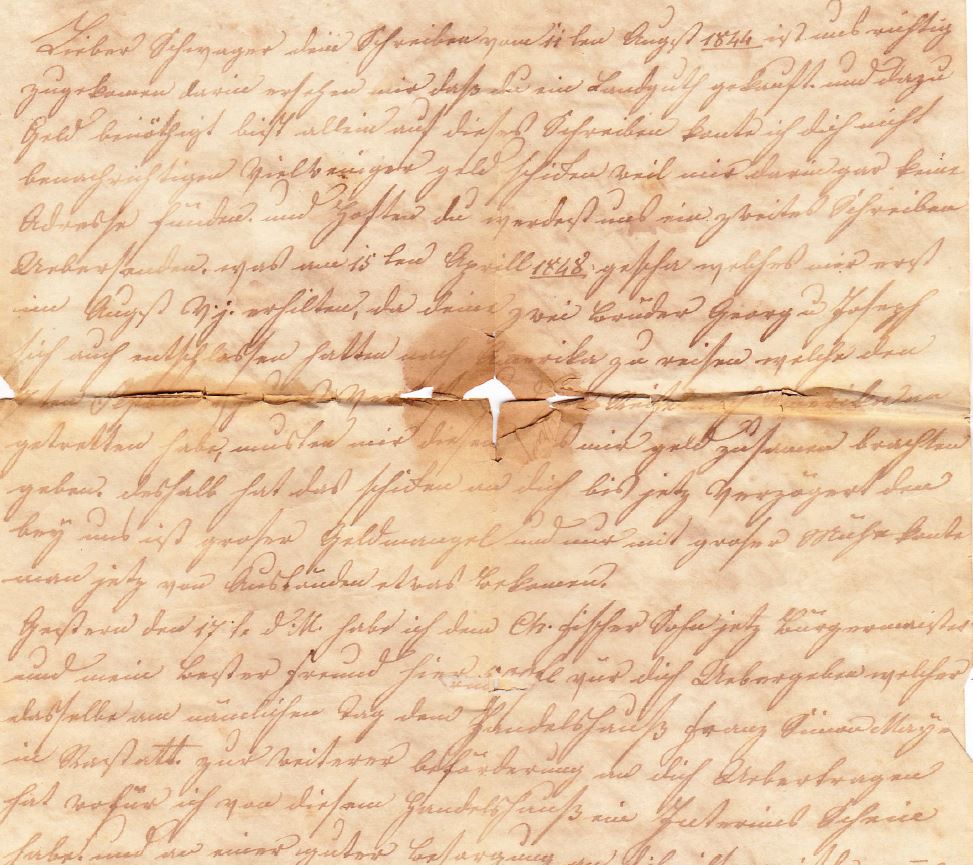 Lieber Schwager dein Schreiben vom 11 ten Augst 1844 ist uns richtig
zugekomen darin ersehen mir daß du ein Landguth gekauft. und dazu
Geld benöthigt bist allein auf dieses Schreiben konte ich dich nicht
benachrichtigen Vielweniger geld schiken weil mir darin gar keine
Adresse fanden. und Hoften du werdest uns ein zweites Schreiben
Uebersenden. was am 15 ten Aprill 1848. gescha welches mir erst
im Augst Vj. erhilten, da deine zwei Brüder Georg u Joseph
sich auch entschlossen hatten nach Amerika zu reisen welche den
getretten habe, musten mir diesen mir geld zusamen brachten
geben. desshalb hat das schiken an dich bis jetz verzögert den
bey uns ist groser Geldmangel und nur mit groser Mühe konte
man jetz von Ausständen etwas bekomen.
Gestern den 17 t. d. M. habe ich dem Ch. Fischer Sohn jetz Bürgermeister
und mein bester Freund hier vür dich Uebergeben welcher
dasselbe am nämlichen Tag dem Handelshauß Franz Simon May
in Rastatt. zur weiterer beförderung an dich Uebertragen
hat wofür ich von diesem Handelshauß ein Interims Schein
habe. und an einer guter besorgung